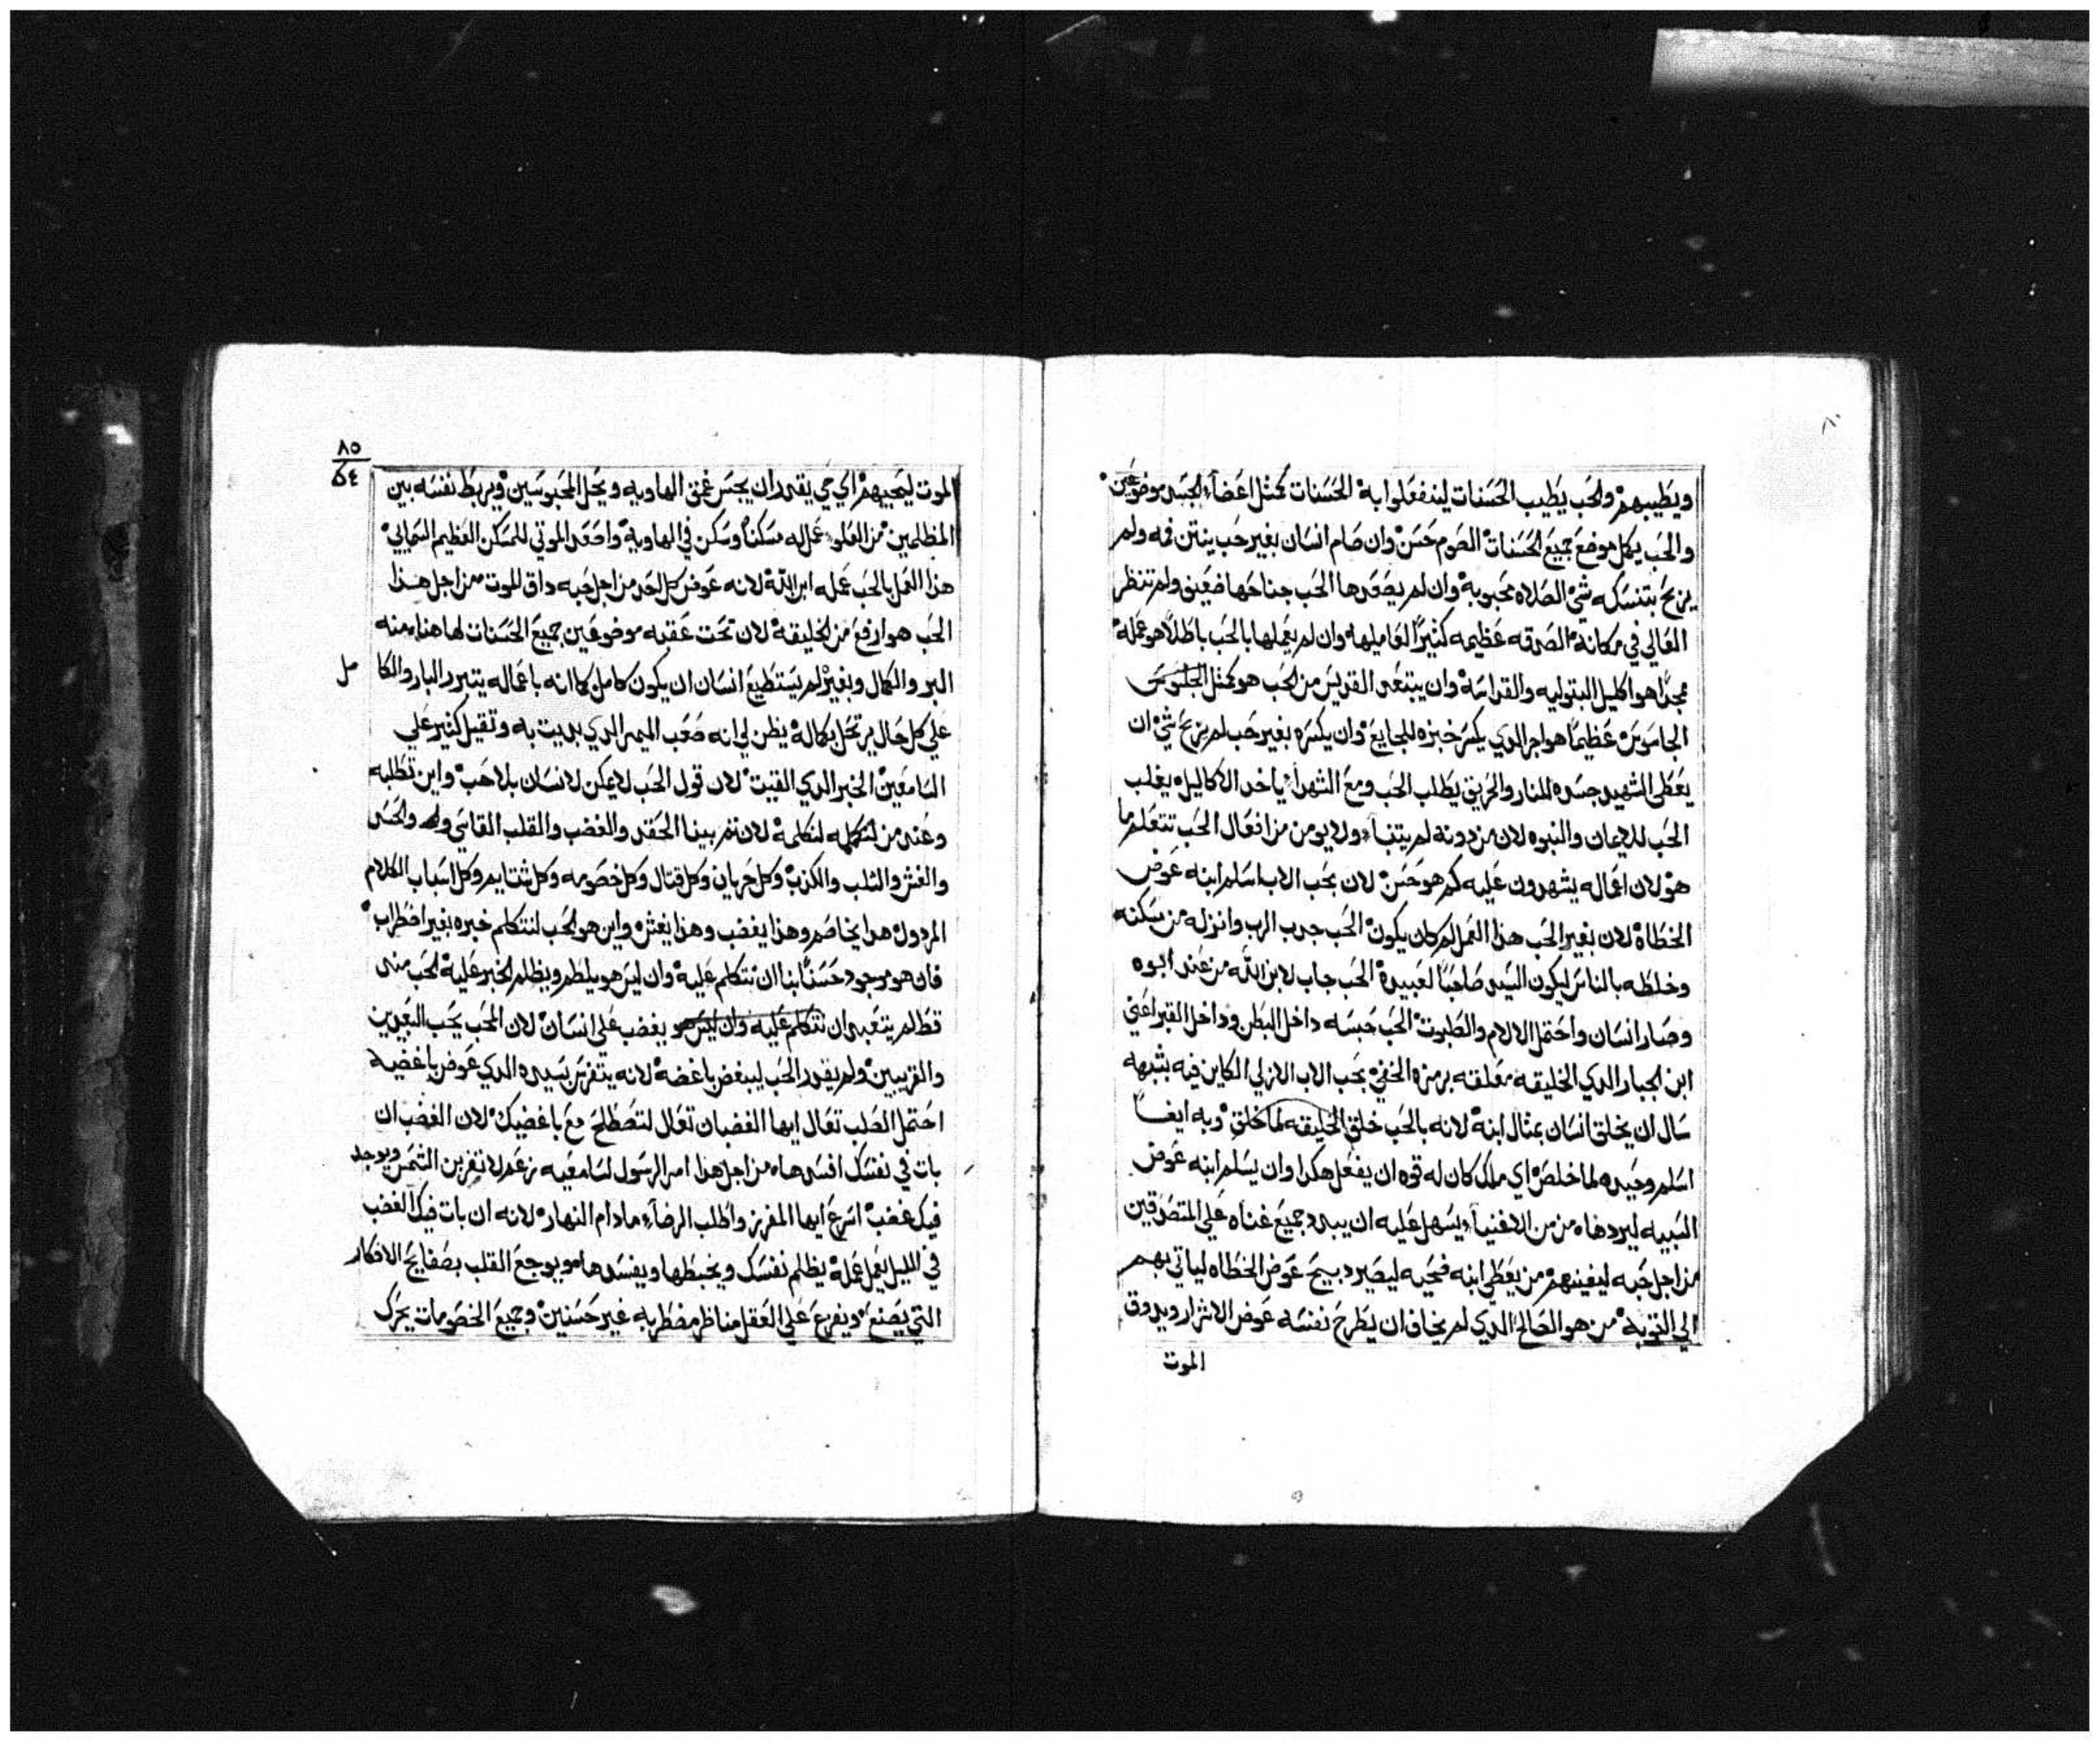 ويطيبهم والحب يطيب الحسنات لينفعلوا به الحسنات كمثل اعضاء الجسد موضوعين
والحب يكمل موضع جميع الحسنات الصوم حسن وان صام انسان بغير حب ينتن فمه ولم
يربح بتنسكه شي الصلاه محبوبة وان لم يصعدها الحب جناحها ضعيف ولم تنظر
العالي في مكانه الصدقه عظيمه كثيرًا لفاعليها وان لم يعملها بالحب باطلاً هو عمله
مجدًا هو اكليل البتوليه والقداسة وان يبتعد القديس من الحب هو كمثل
عظيمًا هو اجر الدي يكسر خبزه للجايع وان يكسره بغير حب لم يربح شي ان
يعطى الشهيد جسده للنار والحريق يطلب الحب ومع الشهدا ياخد الاكاليل يغلب
الحب للايمان والنبوه لان من دونه لم يتنبا ولا يومن من افعال الحب تتعلم ما
هو لان اعماله يشهدون عليه كم هو حسن لان بحب الاب اسلم ابنه عوض
الخطاة لان بغير الحب هذا العمل لم كان يكون الحب جدب الرب وانزله من سكنه
وخلطه بالناس ليكون السيد صاحبًا لعبيده الحب جاب لابن الله من عند ابوه
وصار انسان واحتمل الالام والطبوت الحب حبسه داخل البطن وداخل القبر اعني
ابن الجبار الدي الخليقه معلقه برمزه الخفي بحب الاب الازلي الكاين فيه بشبهه
سال ان يخلق انسان بمثال ابنه لانه بالحب خلق الخليقه لما خلق وبه ايضًا
اسلم وحيده لما خلص اي ملك كان له قوه ان يفعل هكدا وان يسلم ابنه عوض
السبيه ليردها من من الاغنيا يسهل عليه ان يبدد جميع غناه على المتصدقين
من اجل حبه ليغنيهم من يعطي ابنه فحبه ليصير دبيح عوض الخطاه لياتي بهم
الى التوبة من هو الصالح الدي لم يخاف ان يطرح نفسه عوض الاشرار ويدوق
الموت
٨٥
الموت ليحييهم اي حي يقدر ان يجس عمق الهاويه ويحل المحبوسين ويربط نفسه بين
المظلمين من العلو عمل له مسكنًا وسكن في الهاوية واصعد الموتي للمسكن العظيم السمايي
هذا العمل بالحب عمله ابن الله لانه عوض كل احد من اجل حبه داق الموت من اجل هذا
الحب هو ارفع من الخليقة لان تحت عقبه موضوعين جميع الحسنات لها هنا منه
البر والكمال وبغيره لم يستطيع انسان ان يكون كامل كما انه باعماله يتبرر البار والكا مل
على كل حال يرتحل بكماله يظن لي انه صعب الميمر الدي بديت به وتقيل كثير على
السامعين الخبر الدي القيت لان قول الحب لا يمكن لانسان بلا حب واين تطلبه
وعند من لنكلمه لان ثم بيننا الحقد والغضب والقلب القاسي والحسد
والغش والثلب والكدب وكل خربان وكل قتال وكل خصومه وكل شتايم وكل اسباب الكلام
المردول هدا يخاصم وهدا يغضب وهدا يغش واين هو الحب لنتكلم خبره بغير اضطراب
فان هو موجود حسنًا بنا ان نتكلم عليه وان ليس هو يلطم ويظلم الخبر عليه الحب مند
قط لم يتعبد ان نتكلم عليه وان ليس هو يغضب على انسان لان الحب يحب البعيدين
والقريبين ولم يقدر الحب ليبغض باغضه لانه يتفرس بسيده الدي عوض باغضيه
احتمل الصلب تعال ايها الغضبان تعال لتصطلح مع باغضيك لان الغضب ان
بات في نفسك افسدها من اجل هدا امر الرسول لسامعيه زعم لا تغربن الشمس ويوجد
فيك غضب اسرع ايها المفرز واطلب الرضا مادام النهار لانه ان بات فيك الغضب
في الليل يعمل عمله يظلم نفسك ويخبطها ويفسدها ويوجع القلب بصفايح الافكار
التي يصنع ويفرع على العقل مناظر مضطربه غير حسنين وجميع الخصومات يحرك